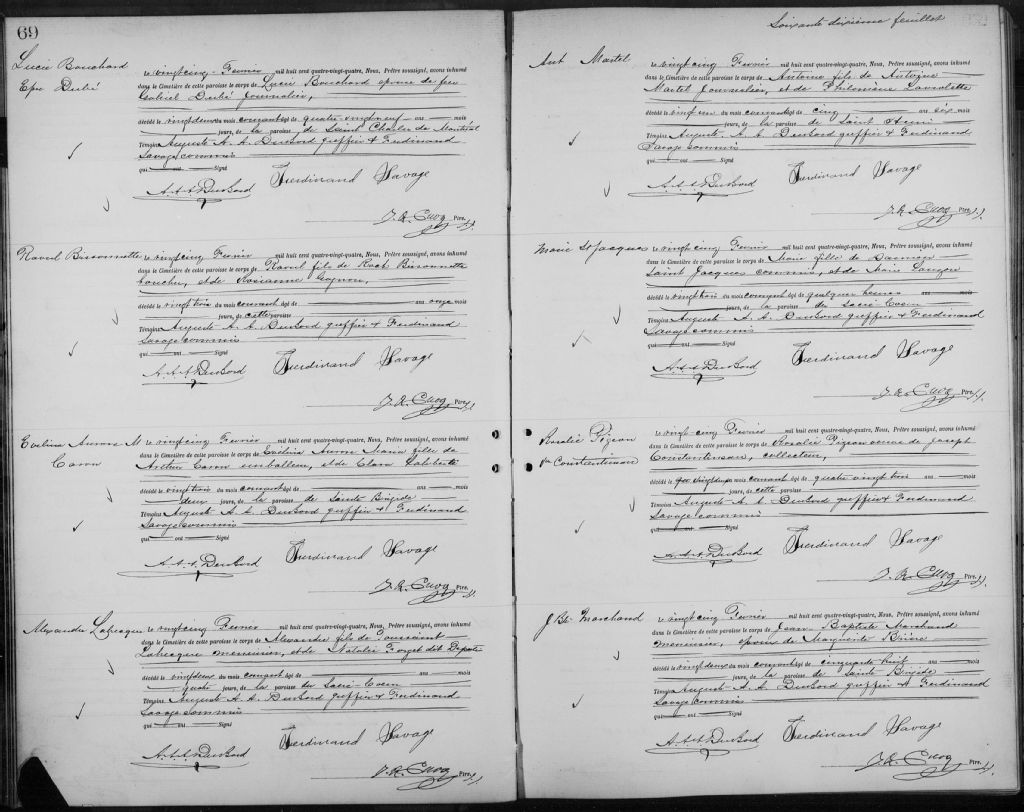 69
Lucie Bouchard
Epse Dubé
Le vingt cinq Fevrier mil huit cent quatre-vingt-quatre, Nous, Prêtre soussigné, avons inhumé
dans le Cimetière de cette paroisse le corps de Lucie Bouchard epouse de feu
Gabriel Dubé Journalier,
décédé le vingt deux du mois courant âgé de quatre vingt neuf ans mois
jours, de la paroisse de Saint Charles de Montréal
Témoins Auguste A. A. DuBord greffier & Ferdinand
Savage commis
qui ont Signé
A. A. A. DuBord Ferdinand Savage
J. R. Cuoq Ptre. S.S.
Raoul Bissonnette
Le vingt cinq Fevrier mil huit cent quatre-vingt-quatre, Nous, Prêtre soussigné, avons inhumé
dans le Cimetière de cette paroisse le corps de Raoul fils de Roch Bissonnette
boucher, et de Marianne Gagnon,
décédé le vingt trois du mois courant âgé de ans onze mois
jours, de cette paroisse
Témoins Auguste A. A. DuBord greffier & Ferdinand
Savage commis
qui ont Signé
A. A. A. DuBord Ferdinand Savage
J. R. Cuoq Ptre. S.S.
Evelina Aurore M
Caron
Le vingt cinq Fevrier mil huit cent quatre-vingt-quatre, Nous, Prêtre soussigné, avons inhumé
dans le Cimetière de cette paroisse le corps de Evelina Aurore Maria fille de
Arthur Caron emballeur, et de Clara Laliberté
décédé le vingt trois du mois courant âgé de ans mois
deux jours, de la paroisse de Sainte Brigide
Témoins Auguste A. A. DuBord greffier & Ferdinand
Savage commis
qui ont Signé
A. A. A. DuBord Ferdinand Savage
J. R. Cuoq Ptre. S.S.
Alexandre Labrecque
Le vingt cinq Fevrier mil huit cent quatre-vingt-quatre, Nous, Prêtre soussigné, avons inhumé
dans le Cimetière de cette paroisse le corps de Alexandre fils de Toussaint
Labrecque menuisier, et de Natalie Forget dit Depatie
décédé le vingt deux du mois courant âgé de ans mois
jours, de la paroisse du Sacré-Coeur
Témoins Auguste A. A. DuBord greffier & Ferdinand
Savage commis
qui ont Signé
A. A. A. DuBord Ferdinand Savage
J. R. Cuoq Ptre. S.S.
Soixante dixième feuillet
Ant Martel
Le vingt cinq Fevrier mil huit cent quatre-vingt-quatre, Nous, Prêtre soussigné, avons inhumé
dans le Cimetière de cette paroisse le corps de Antoine fils de Antoine
Martel Journalier, et de Philomène Laviolette
décédé le du mois courant âgé de cinq ans six mois
jours, de la paroisse de Saint Henri
Témoins Auguste A. A. DuBord greffier & Ferdinand
Savage commis
qui ont Signé
A. A. A. DuBord Ferdinand Savage
J. R. Cuoq Ptre. S.S.
Marie St Jacques
Le vingt cinq Fevrier mil huit cent quatre-vingt-quatre, Nous, Prêtre soussigné, avons inhumé
dans le Cimetière de cette paroisse le corps de Marie fille de
Saint Jacques commis, et de Marie Lauzon
décédé le vingt trois du mois courant âgé de quelques heures ans mois
jours, de la paroisse du Sacré Coeur
Témoins Auguste A. A. DuBord greffier & Ferdinand
Savage commis
qui ont Signé
A. A. A. DuBord Ferdinand Savage
J. R. Cuoq Ptre. S.S.
Rosalie Pigeon
Constantineau
Le vingt cinq Fevrier mil huit cent quatre-vingt-quatre, Nous, Prêtre soussigné, avons inhumé
dans le Cimetière de cette paroisse le corps de Rosalie Pigeon veuve de Joseph
Constantineau, collecteur,
décédé le vingt deux du mois courant âgé de quatre vingt trois ans mois
jours, de cette paroisse
Témoins Auguste A. A. DuBord greffier & Ferdinand
Savage commis
qui ont Signé
A. A. A. DuBord Ferdinand Savage
J. R. Cuoq Ptre. S.S.
J Bte Marchand
Le vingt cinq Fevrier mil huit cent quatre-vingt-quatre, Nous, Prêtre soussigné, avons inhumé
dans le Cimetière de cette paroisse le corps de Jean Baptiste Marchand
menuisier, epoux de Marguerite Brière
décédé le vingt deux du mois courant âgé de cinquante huit ans mois
jours, de la paroisse de Sainte Brigide
Témoins Auguste A. A. DuBord greffier & Ferdinand
Savage commis
qui ont Signé
A. A. A. DuBord Ferdinand Savage
J. R. Cuoq Ptre. S.S.